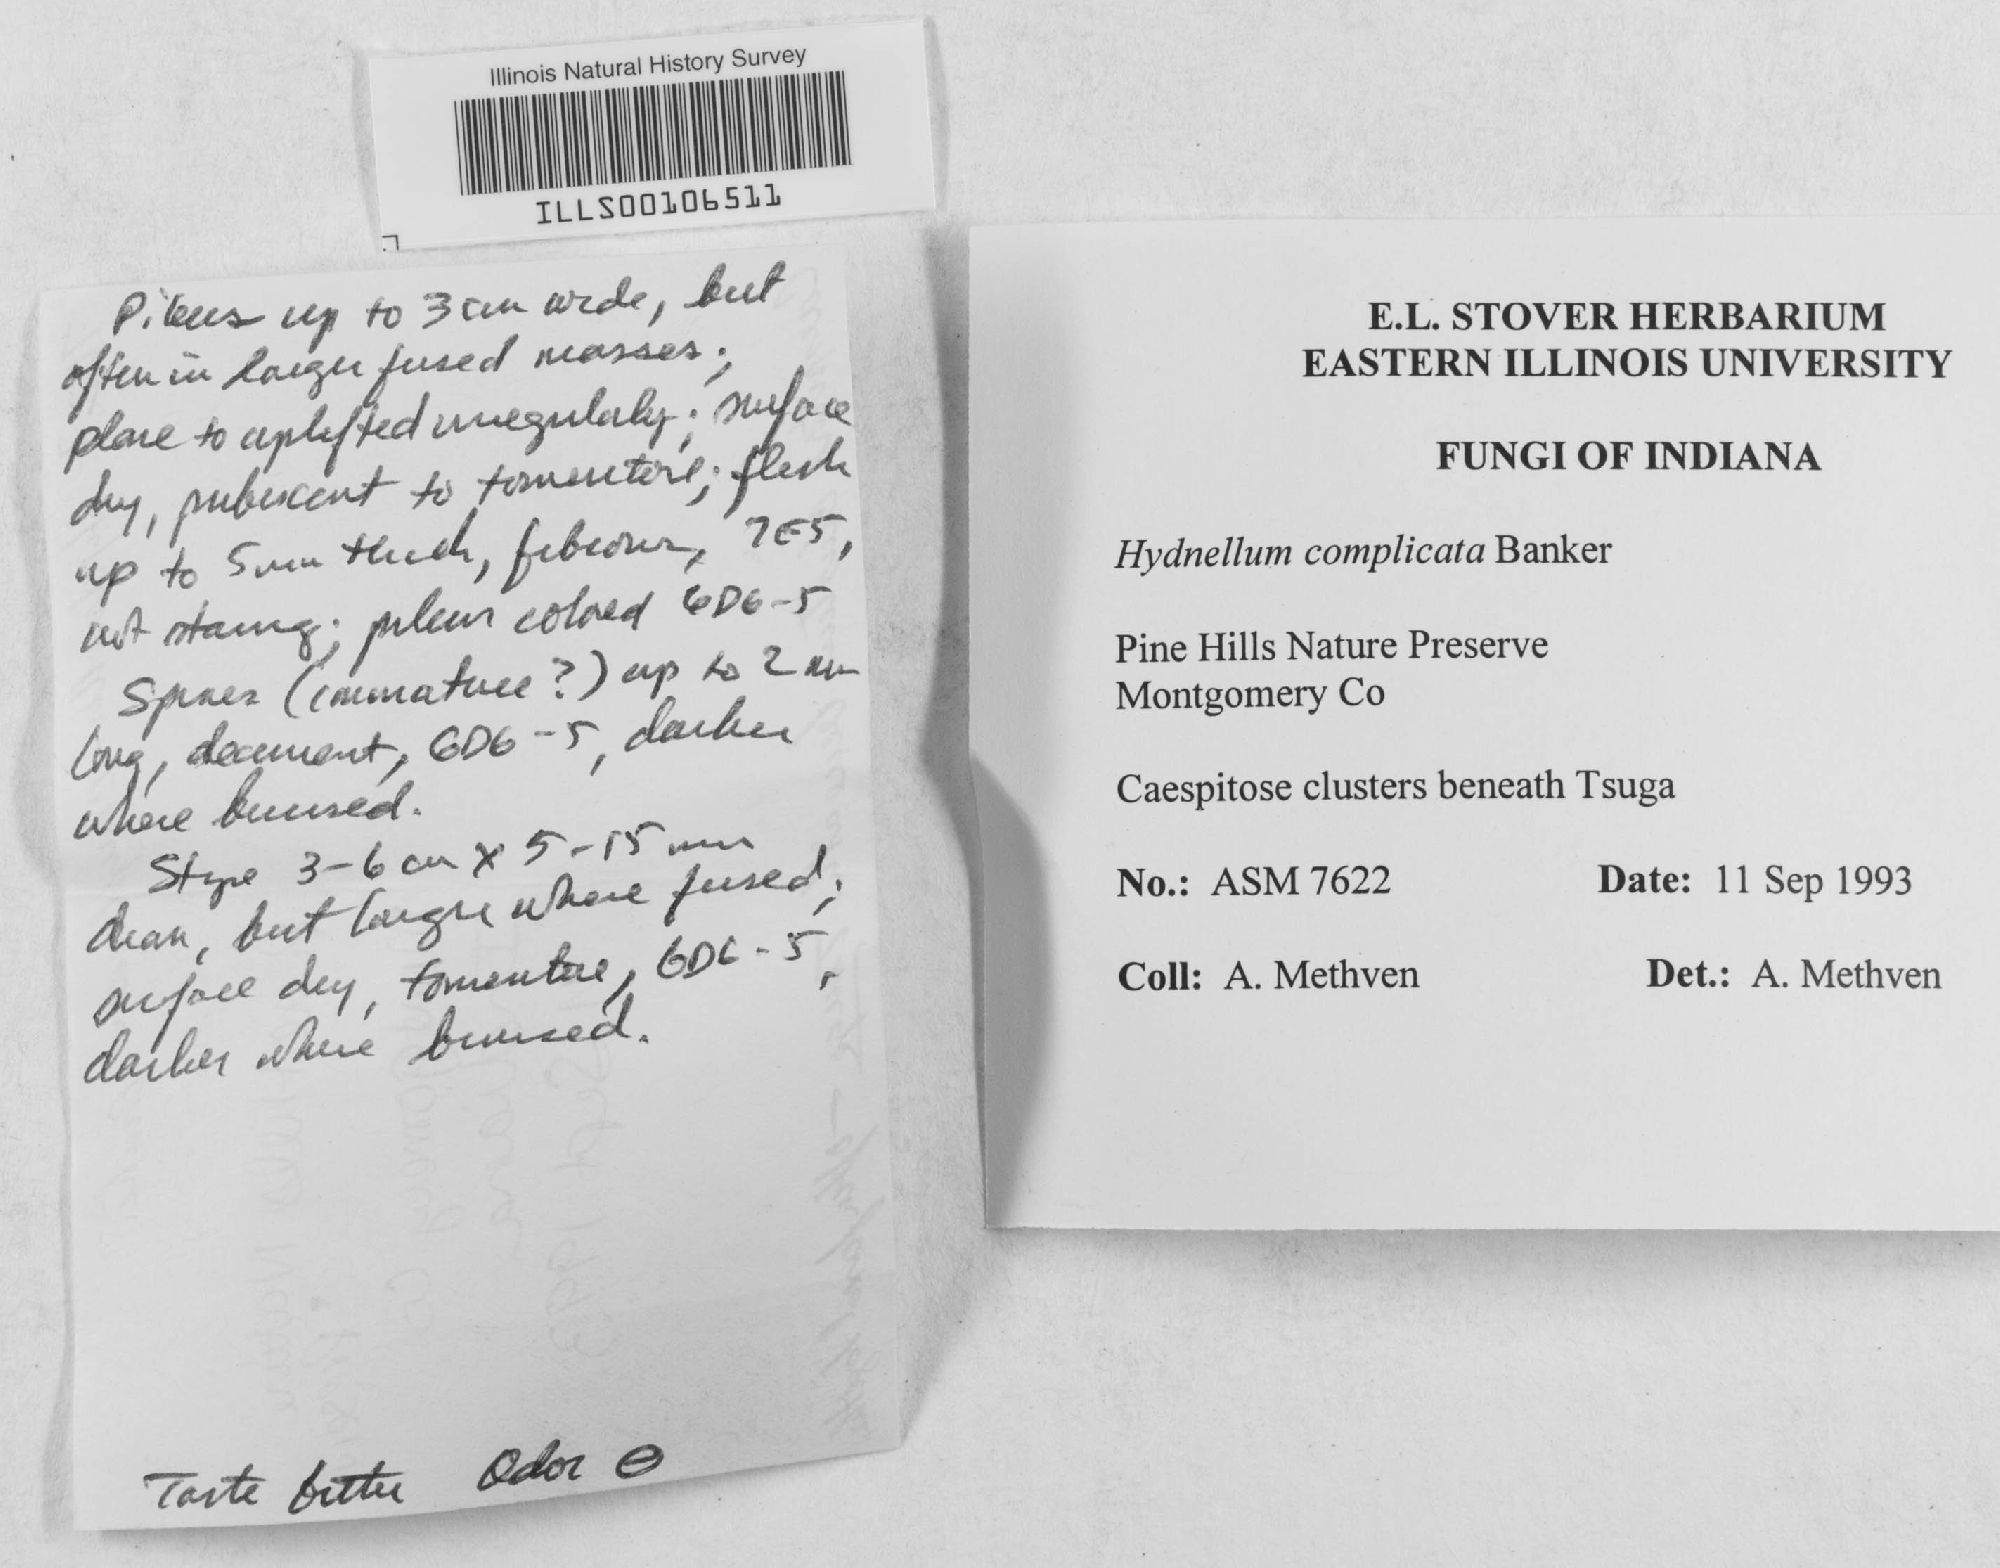 Illinois Natural History Survey
ILLS00106511
Pileus up to 3 cm wide, but
often in larger fused masses;
plane to uplifted irregularly; surface
dry, pubescent to tomentose; flesh
up to 5 mm thick, fibrous, 7E5,
not staining; pileus colored 6D6-5
Spines (immature?) up to 2 mm
long, decurrent, 6D6-5, darker
where bruised.
Stipe 3-6 cm x 5-15 mm
diam, but larger where fused;
surface dry, tomentose, 6D6-5,
darker where bruised.
Taste bitter Odor ⊖
E.L. STOVER HERBARIUM
EASTERN ILLINOIS UNIVERSITY
FUNGI OF INDIANA
Hydnellum complicata Banker
Pine Hills Nature Preserve
Montgomery Co
Caespitose clusters beneath Tsuga
No.: ASM 7622 Date: 11 Sep 1993
Coll: A. Methven Det.: A. Methven